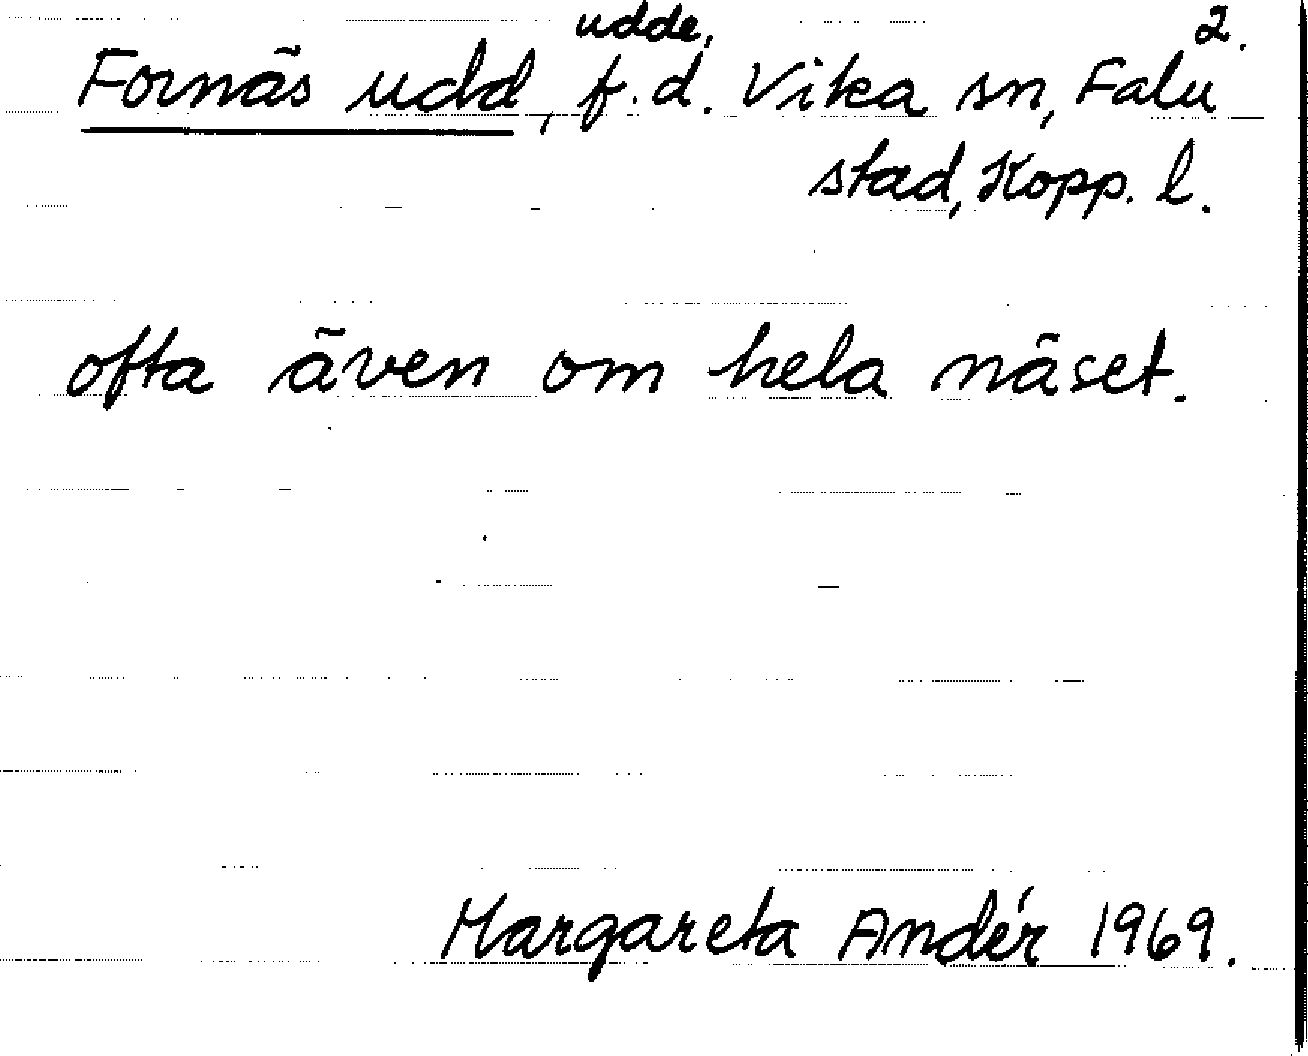 2.
Fornäs udd, udde, f.d. Vika sn, Falu
stad, Kopp. l.
ofta även om hela näset.
Margareta Andér 1969.